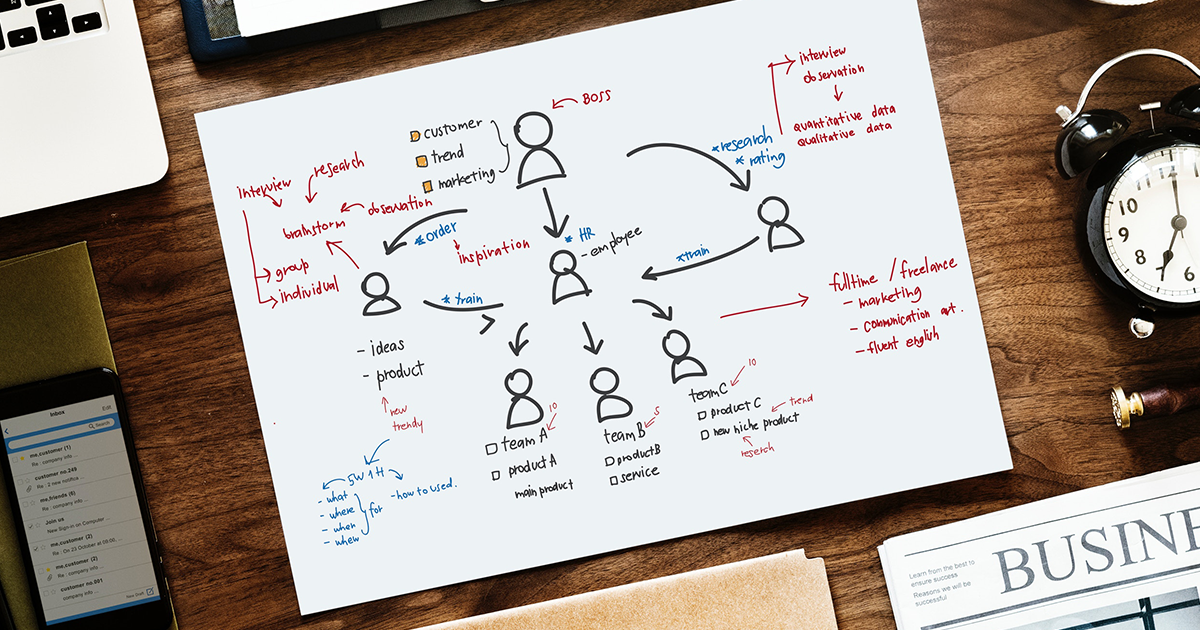 BOSS
customer
trend
marketing
interview
observation
quantitative data
qualitative data
*research
* rating
interview
research
observation
brainstorm
group
individual
*order
inspiration
* HR
- employee
*train
* train
- ideas
- product
new
trendy
fulltime / freelance
- marketing
- communication art.
- fluent english
team A
10
product A
main product
team B
5
product B
service
team C
10
product C
new niche product
trend
reserch
5W 1H
- what
- where
- when
- whew
for
- how to used.
10
9
8
7
6
11
12
BUSINE
Learn from the best to
ensure success
Reasons we will be
successful
Inbox
Edit
Search
me,customer (1)
Re : company info ...
customer no.249
Re : 2 new notifice ...
me,friends (6)
Re : company info ...
Join us
New Sign-in on Computer ...
me,customer (2)
Re : On 23 October at 08:00, ...
me.customer (2)
Re : company info ...
customer no.001
company info ...
New Draft